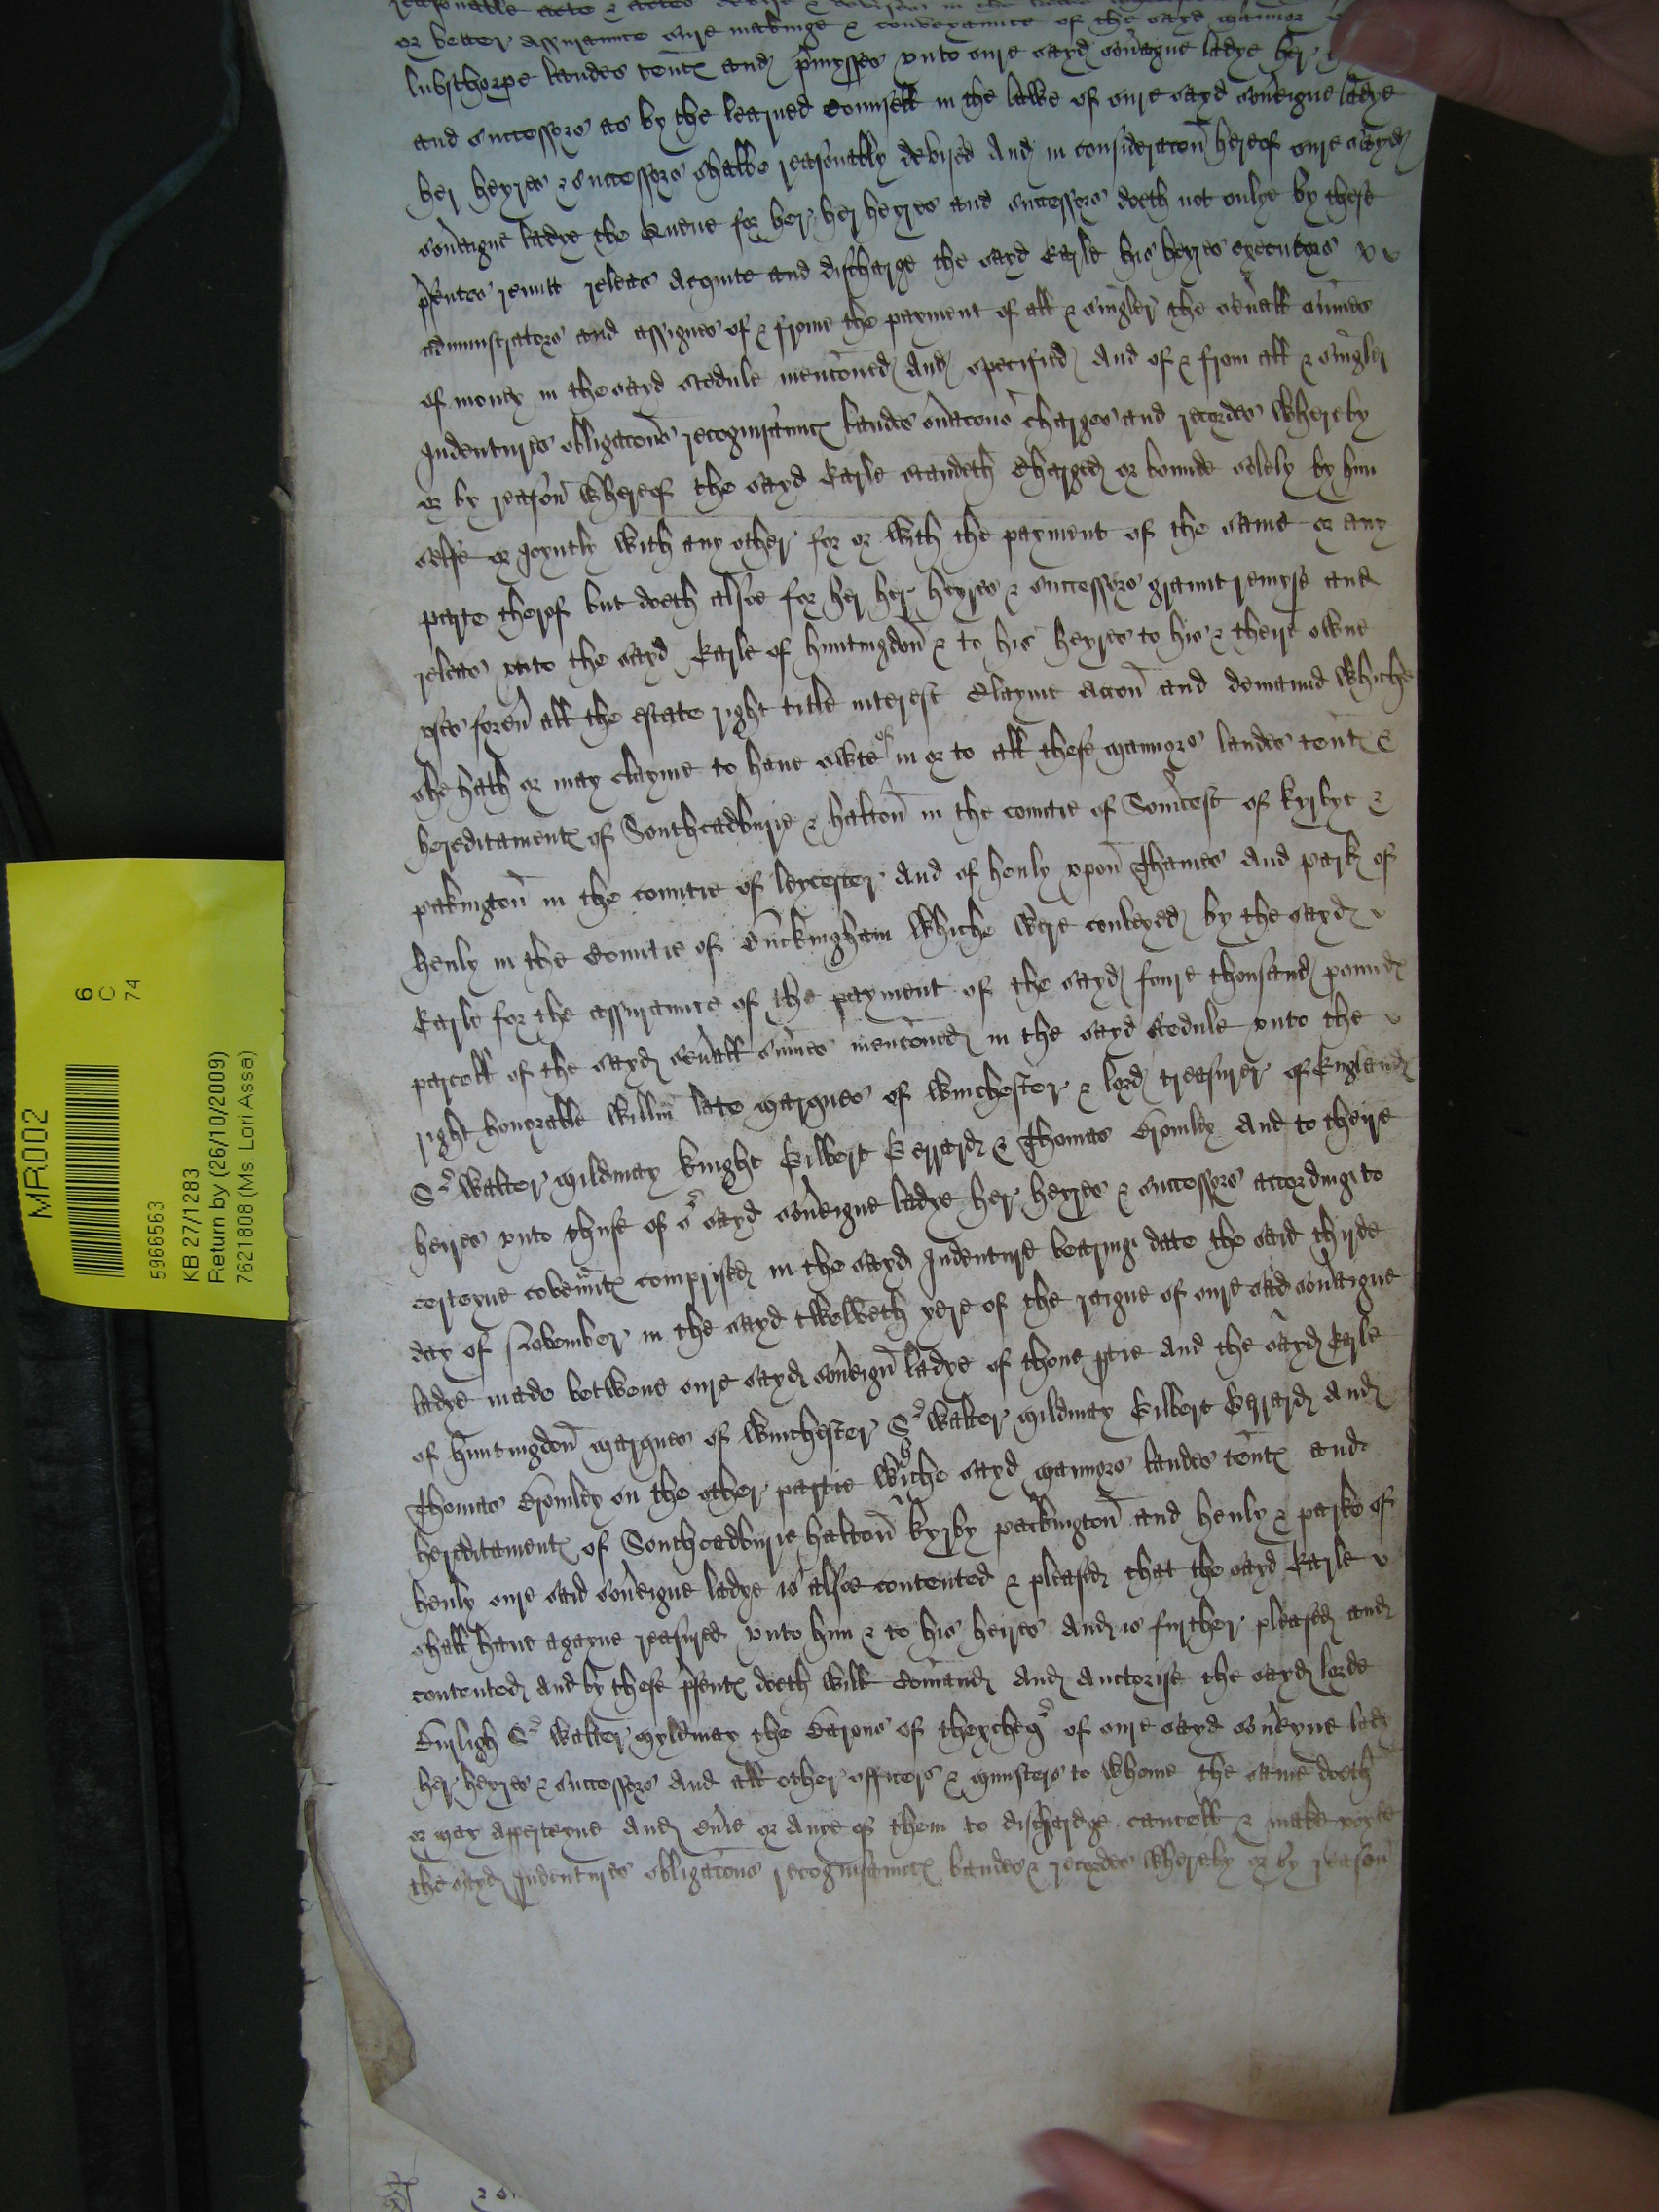 reasonable acte & actes devise & devises in the
or better assuraunce sure makinge & conveyaunce of the sayd mannor
lubsthorpe landes tentꝭ and p̃mysses unto oure sayd sov̾aigne ladye her
and successors as by the learned Counsell in the lawe of oure sayd sov̾eigne ladye
her heyres & successors shalbe reasonably devised And in consideracon̄ hereof oure sayd
sov̾aigne ladye the Quene for her, her heyres and successors doeth not onlye by these
p̃sentes remitt releas acquite and discharge the sayd Earle his heyres executors
administrators and assignes of & frome the payment of all & singler the sev̾all sum̄es
of money in the sayd scedule menc̃oned And specified And of & from all & singler
Indentures obligac̃ons recognisauncꝭ bandes charges and recordes whereby
or by reason̄ whereof the sayd Earle standeth Charged or bounde solely by him
selfe or joyntly with any other for or with the payment of the same or any
parte therof but doeth alsoe for her her heyres & successors graunt remyse and
releas unto the sayd Earle of huntingdon̄ & to his heyres to his & theire owne
uses forev̾ all the estate right title interest Clayme accon̄ and demaund whiche
she hath or may clayme to have owte of in or to all these mannors landes tentꝭ &
hereditamentꝭ of Southcadburie & halton̄ in the countie of Som̾cest of kyrbye &
pakington̄ in the countie of leycester And of henly upon̄ Thames and park of
henly in the Countie of Buckingham whiche were conveyed by the sayd
Earle for the assuraunce of the payment of the sayd foure thousand poundꝭ
parcell of the sayd sev̾all sum̄es menc̃oned in the sayd scedule unto the
right honorable Willm̄ late marques of Winchester & lord treasurer of England
Sr Walter mildmay knight Gilbert Gerrard & Thomas Bromley And to theire
heires unto thuse of or sayd sov̾eigne ladye her heyres & successors according to
certeyne covenntꝭ comprised in the sayd Indenture bearing date the said thirde
day of November in the sayd twelveth yere of the reigne of oure said sov̾aigne
ladye made betwene oure sayd sov̾eign̄ ladye of thone p̱tie And the sayd Earle
of huntingdon̄ marques of Winchester Sr Walter mildmay Gilbert Gerrard And
Thomas Bromley on the other partie whiche sayd mannors landes tentꝭ and
hereditamentꝭ of Southcadburie halton̄ kyrby packington̄ and henly & parke of
henly oure said sov̾eigne ladye is alsoe contented & pleased that the sayd Earle
shall have agayne reasured unto him & to his heires And is further pleased and
contented And by these p̃sentꝭ doeth will com̄and And auctorise the sayd lorde
Burligh Sr Walter myldmay the Barons of thexcheqr of oure sayd sov̾eyne lady
her heyres & successors And all other officers & ministers to whome the same doeth
or may apperteyne And ev̾ie or anye of them to discharge cancell & make voyde
the sayd Indentures obligac̃ons recognisauncꝭ bandes & recordes whereby or by reason̄
MR002
6
C
74
5966563
KB 27/1283
Return by (26/10/2009)
7621808 (Ms Lori Assa)